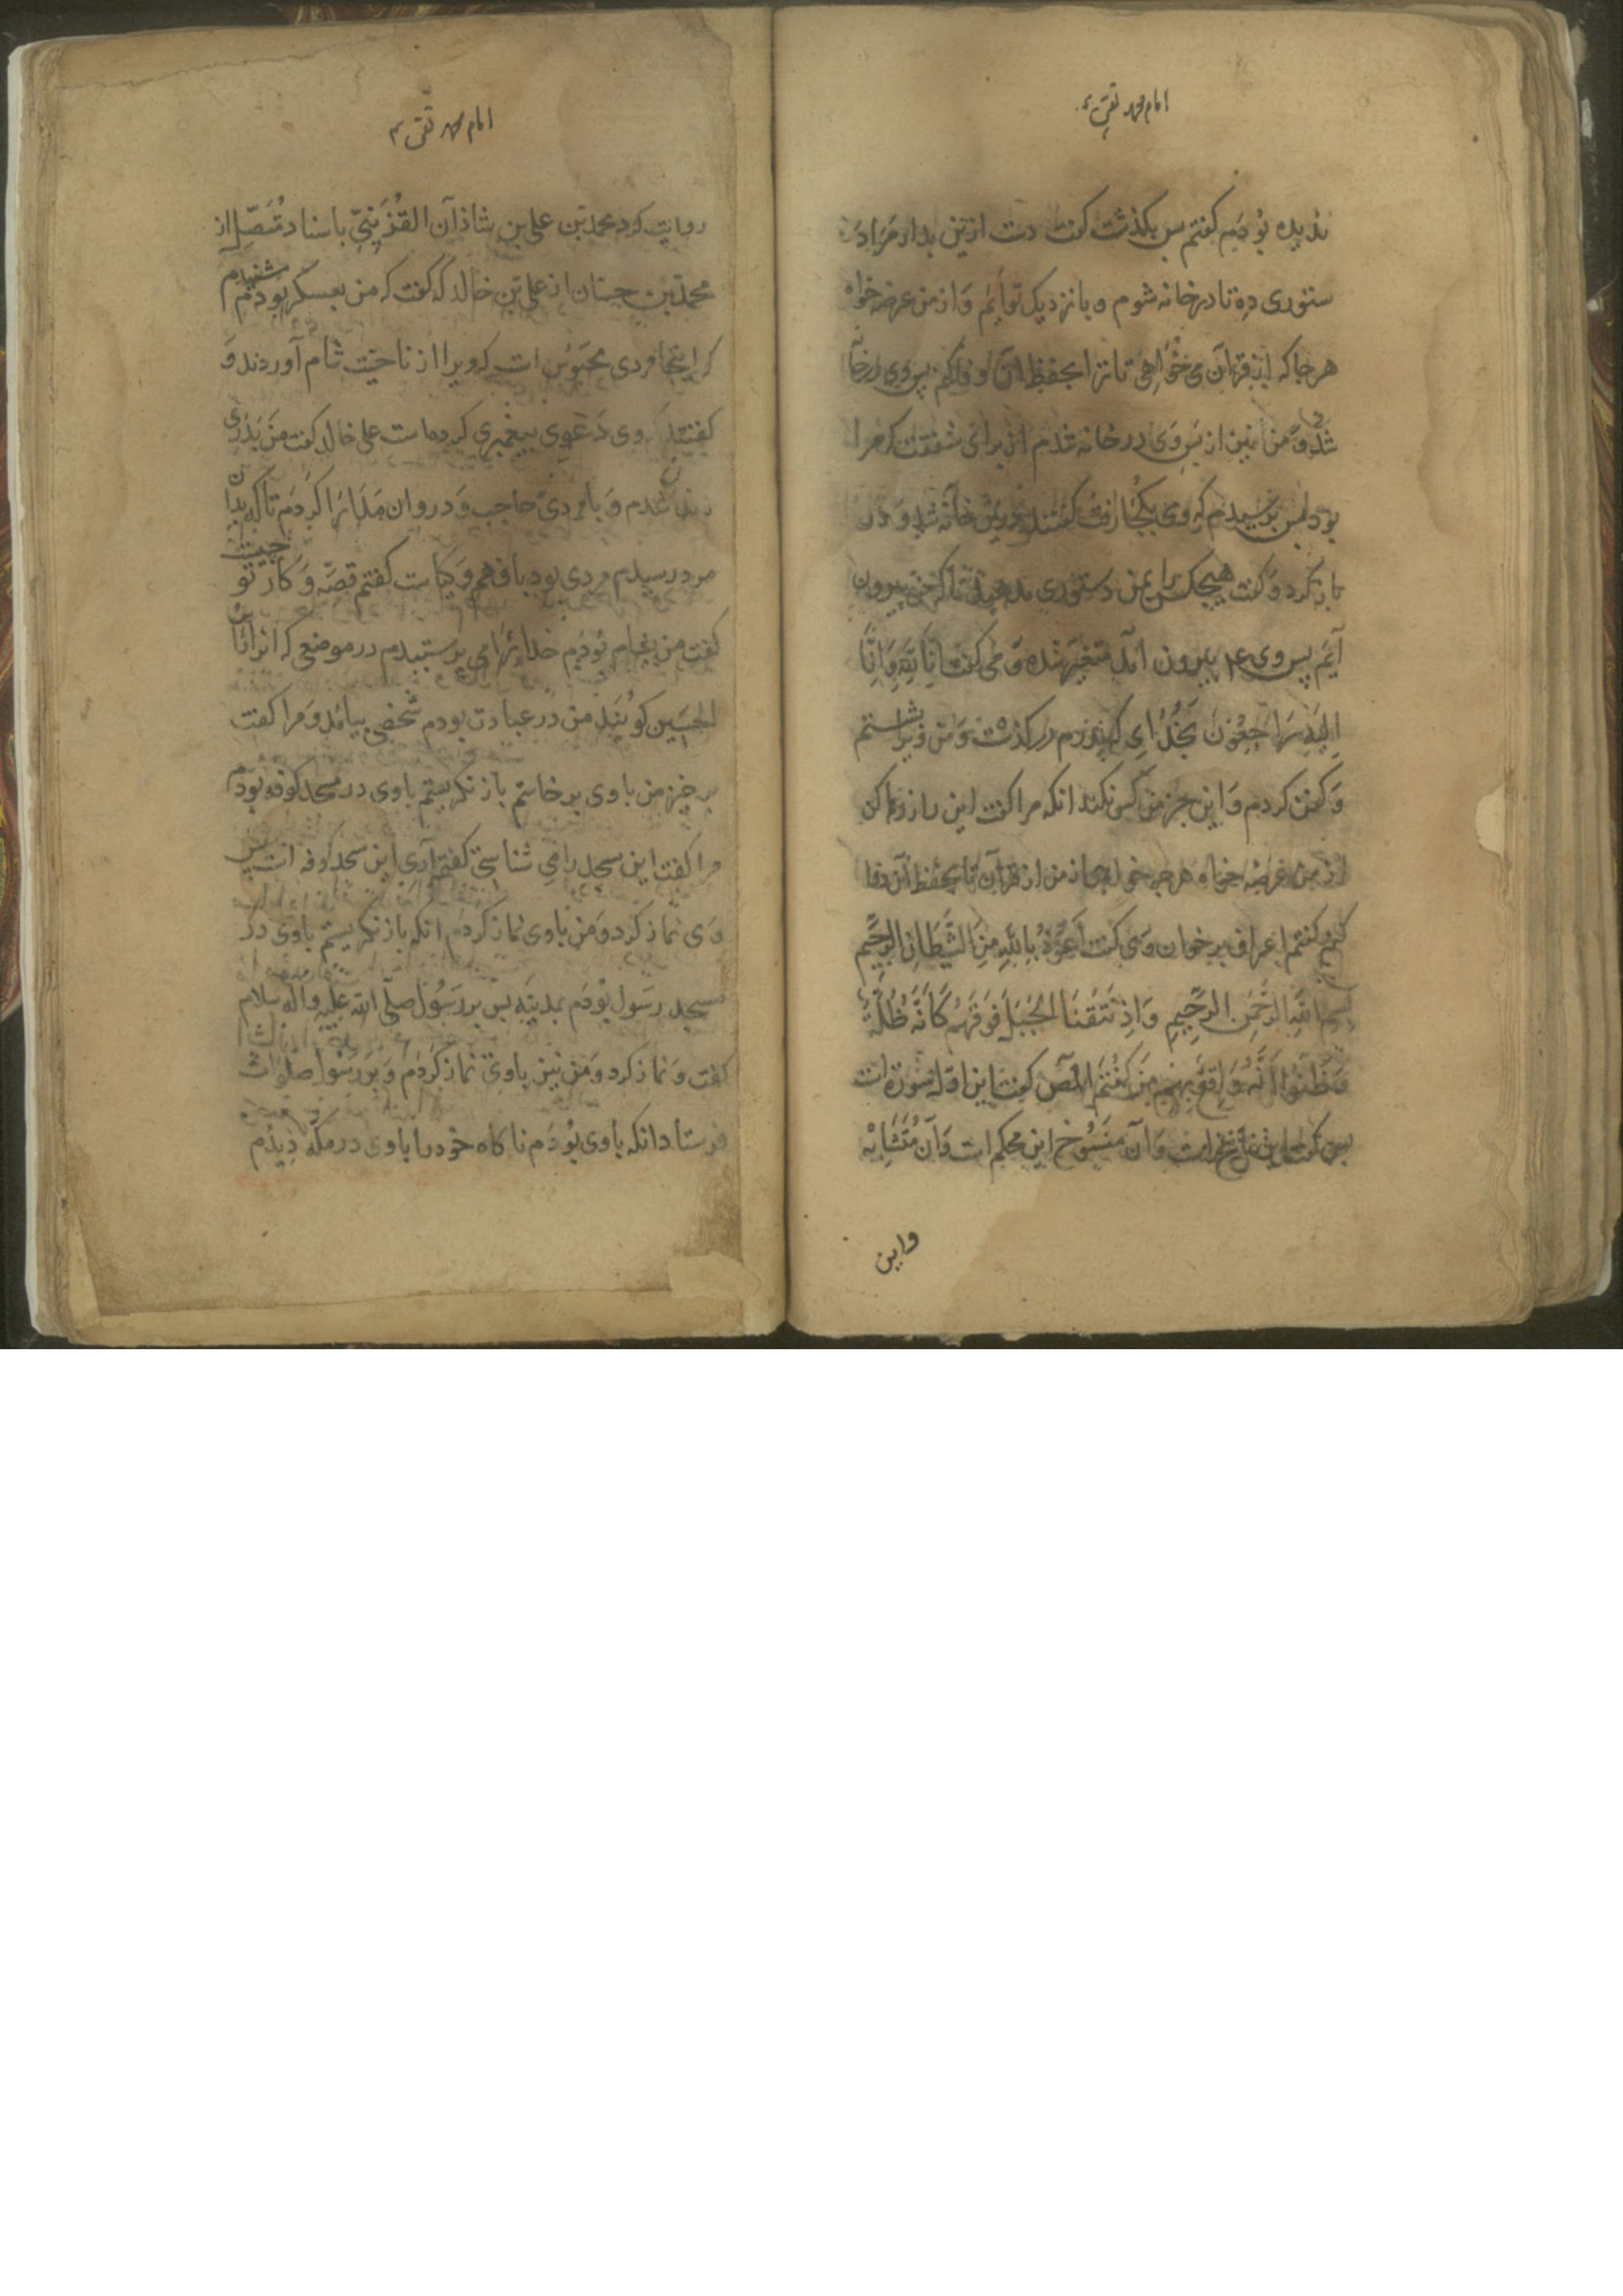 امام محمد تقی ع
ندیده بودیم گفتم پس بگذشت گفت دست ازین بدار مرا دَ
ستوری ده تا در خانه شوم و با نزدیک تو آیم وَ از من عرضه خواه
هر جا که از قرآن می خواهی تا ترا بحفظ آن وفا کنم پس وی در خانه
شد وَ من نیز از پس وی در خانه شدم از برای شفقت که مرا
بود پس پرسیدم که وی بکجا رفت گفتند درین خانه شد و در
باز کرد وَ گفت هیچکس را بر من دستوری مدهید تا که من بیرون
آیم پس وی ع بیرون آمد متغیر شده وَ می گفت اِنّا لِلّهِ وَاِنّا
اِلَیْهِ رَاجِعُونَ بخدُای که پدرم در گذشت وَ من ویرا بشستم
وَ کفن کردم وَ این جز من کس نکند انکه مرا گفت این را زوها کن
از من عرضه خواه هر چه خواهی از من از قرآن تا بحفظ آن وفا
کنم گفتم اعراف بر خوان وَی گفت اَعُوذُ بِاللّهِ مِنَ الشَّیْطَانِ الرَّجِیمِ
بسم اللّهِ الرَّحْمنِ الرَّحِیمِ وَاِذْ نَتَقْنَا الْجَبَلَ فَوْقَهُمْ کَاَنَّهُ ظُلَّةٌ
وَظَنُّوا اَنَّهُ وَاقِعٌ بِهِمْ من گفتم المص گفت این اول سوره است
پس گفت این ناسخ است وَ آن منسوخ این محکم است وَ آن مُتَشَابِهْ
واین
امام محمد تقی ع
روایت کرد محمد بن علی بن شاذان القزوینی باسناد مُتَّصِل از
محمد بن حسان از علی بن خالد که گفت که من بعسکر بودم شنیدم
که اینجا مردی محبوس است که ویرا از ناحیت شام آوردند وَ
گفتند وی دَعوی پیغمبری کرده است علی خالد گفت من بدر
زندان شدم وَ با مردی حاجب وَ دروان مدارا کردم تا که بدان
مرد رسیدم مردی بود با فهم وَ کیاست گفتم قصّه وَ کار تو چیست
گفت من بشام بودم خدای را می پرستیدم در موضعی که انرا راس
الحسین گویند من در عبادت بودم شخصی بیامد وَ مرا گفت
بر خیز من با وی بر خاستم باز نگریستم با وی در مسجد کوفه بودم
مرا گفت این مسجد را می شناسی گفتم آری این مسجد کوفه است پس
وَی نماز کرد وَ من با وی نماز کردم انکه باز نگریستم با وی در
مسجد رسول بودم بمدینه پس بر رسول صلّی الله علیه واله سلام
گفت وَ نماز کرد وَ من نیز با وی نماز کردم وَ بر رسول صلوات
فرستاد انکه با وی بودم ناگاه خود را با وی در مکه دیدم